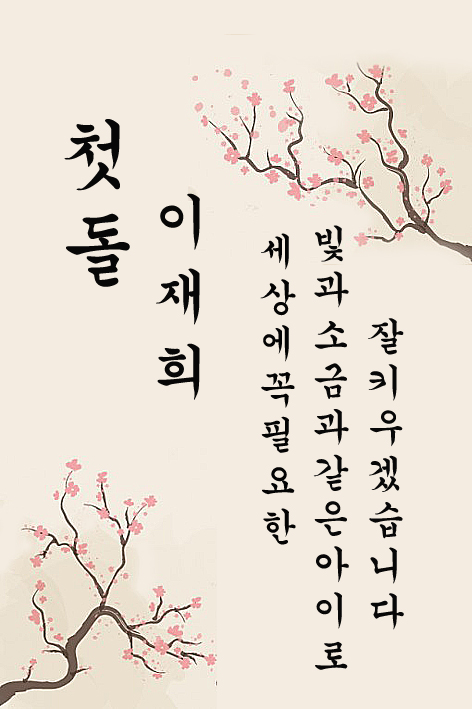 첫돌
이재희
세상에꼭필요한
빛과소금과같은아이로
잘키우겠습니다